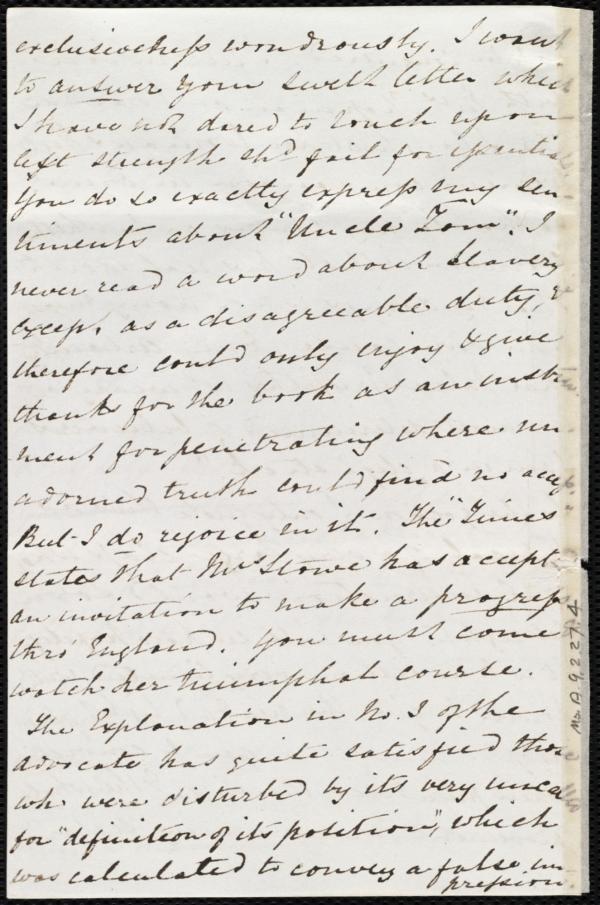 exclusiveness wondrously. I want
to answer your sweet letter which
I have not dared to touch upon
lest strength shd fail for essential
You do so exactly express my sen
timents about "Uncle Tom". I
never read a word about Slavery
except as a disagreeable duty, &
therefore could only enjoy & give
thanks for the book as an instru
ment for penetrating where un
adorned truth could find no acce
But I do rejoice in it. The "Times
states that Mrs Stowe has accept
an invitation to make a progress
thro' England. You must come
watch her triumphal course.
The Explanation in No. I of the
Advocate has quite satisfied those
wh were disturbed by its very unca
for "definition of its position", which
was calculated to convey a false im
pression.
Ms. A.9.2.27.4